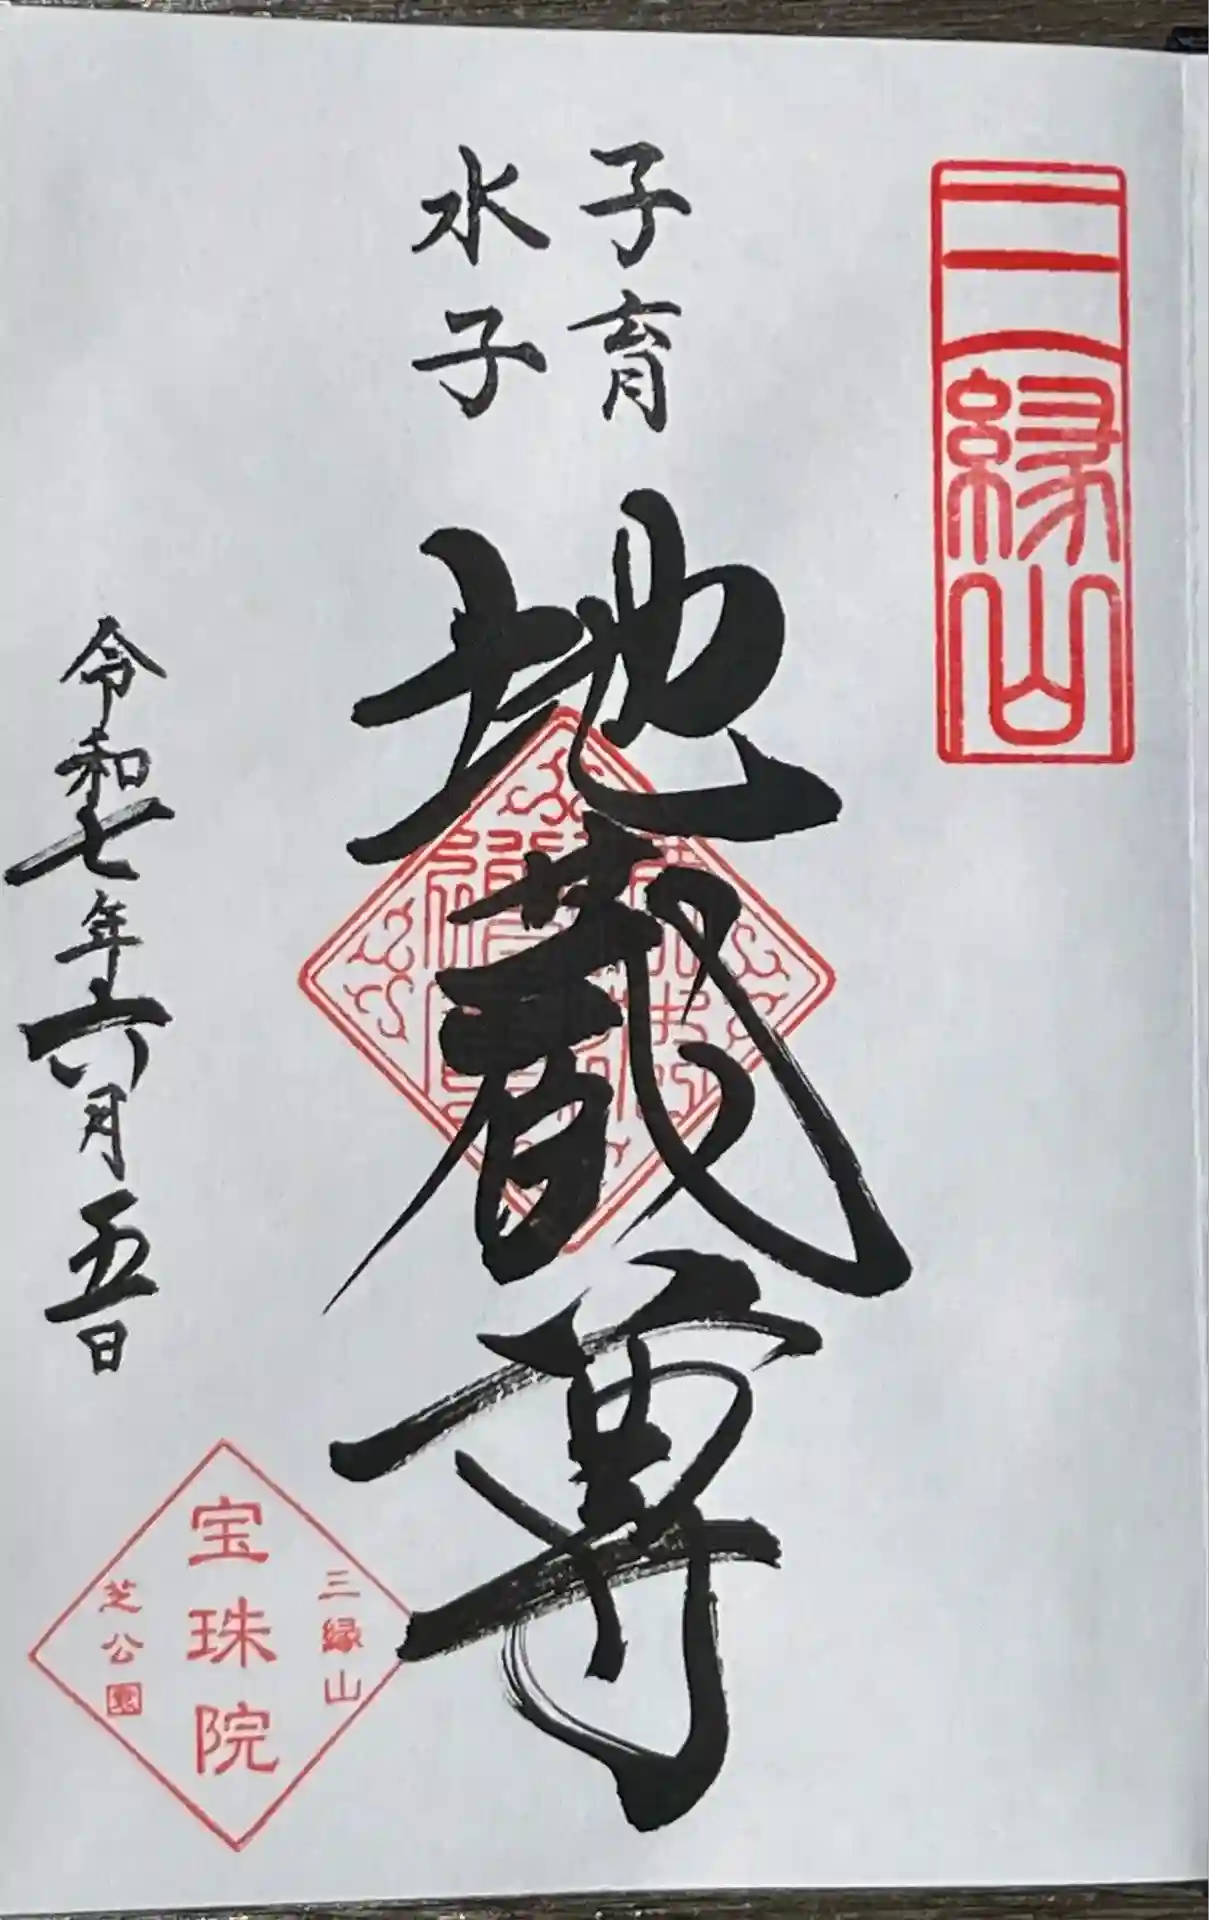 三縁山
子育
水子
地蔵尊
令和七年六月五日
三縁山
宝珠院
芝公園